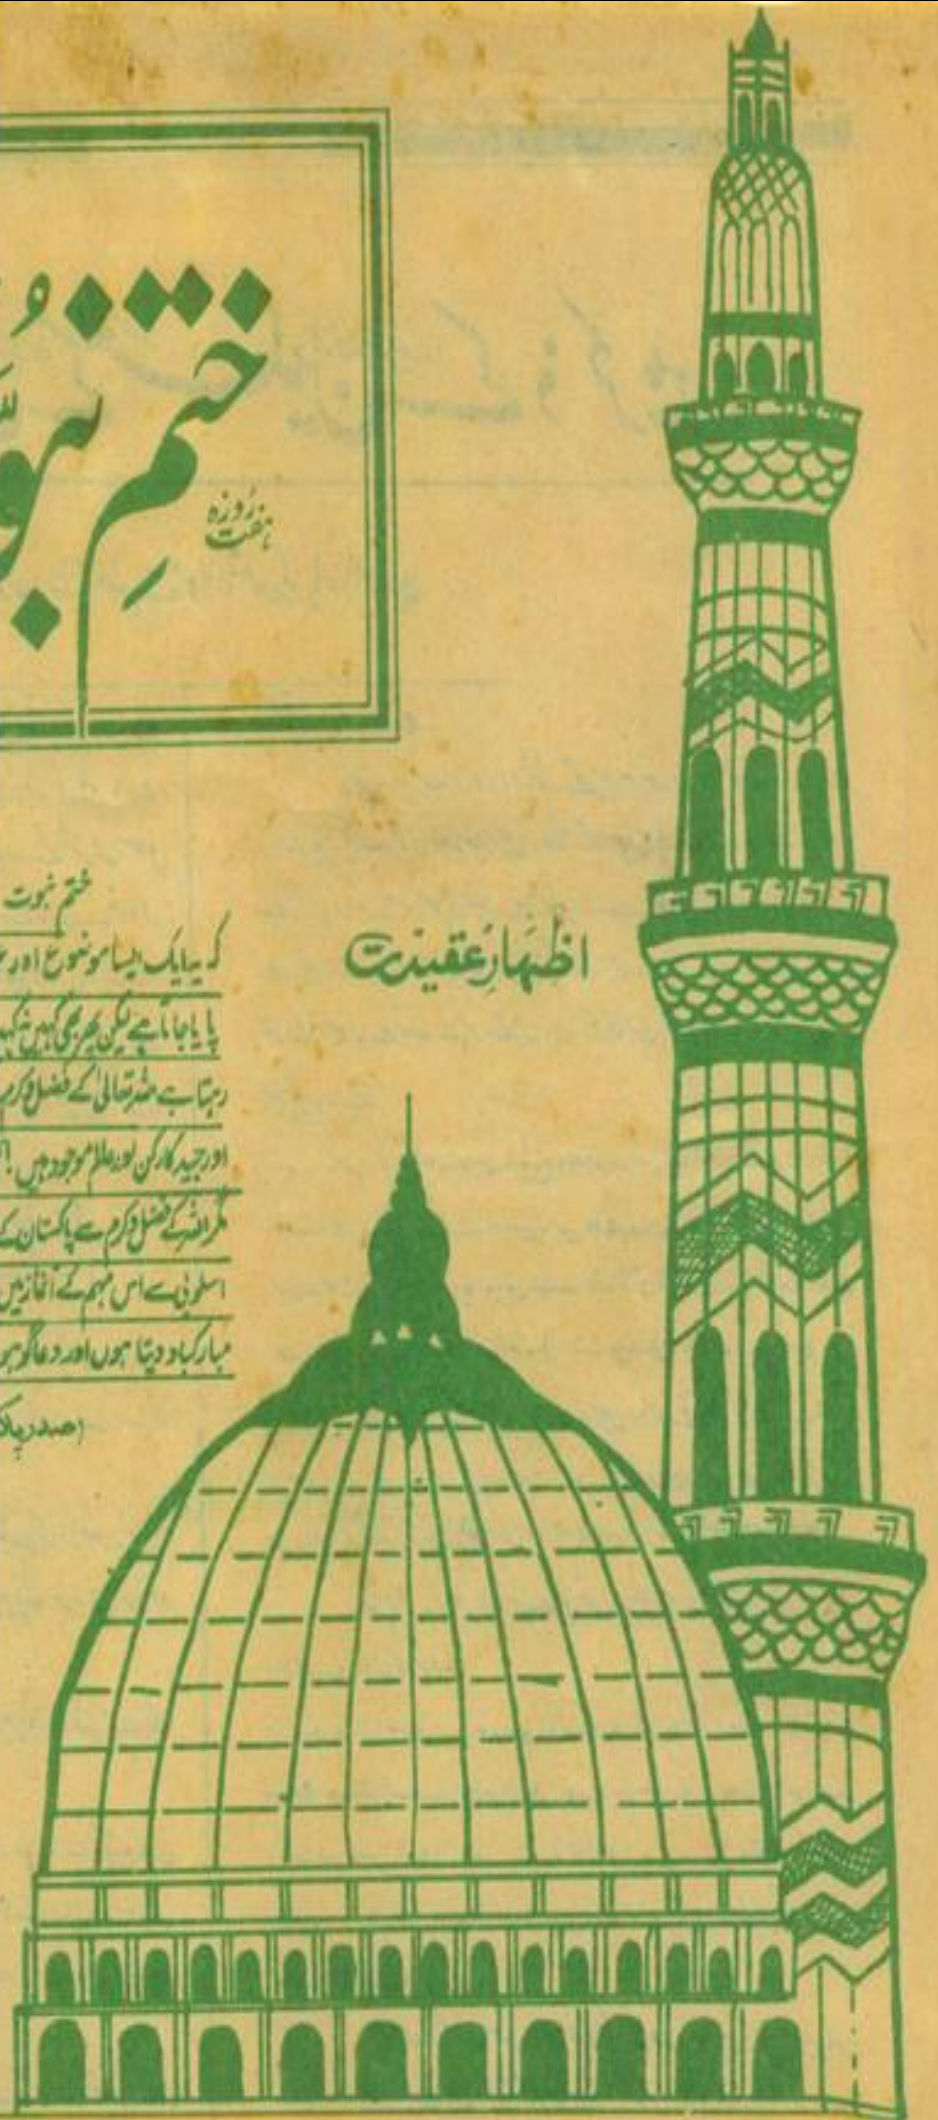 ختمِ نبو
ہفت روزہ
اظہارِ عقیدت
ختم نبوت
کہ یہ ایک ایسا موضوع اور
پایا جاتا ہے لیکن پھر بھی کہیں نہ کہیں
رہتا ہے اللہ تعالیٰ کے فضل و کرم
اور جید کارکن اور عالم موجود ہیں
مگر اللہ کے فضل و کرم سے پاکستان کے
اسلوبی سے اس مہم کے آغاز میں
مبارکباد دیتا ہوں اور دعاگو ہو
(صدر پاک